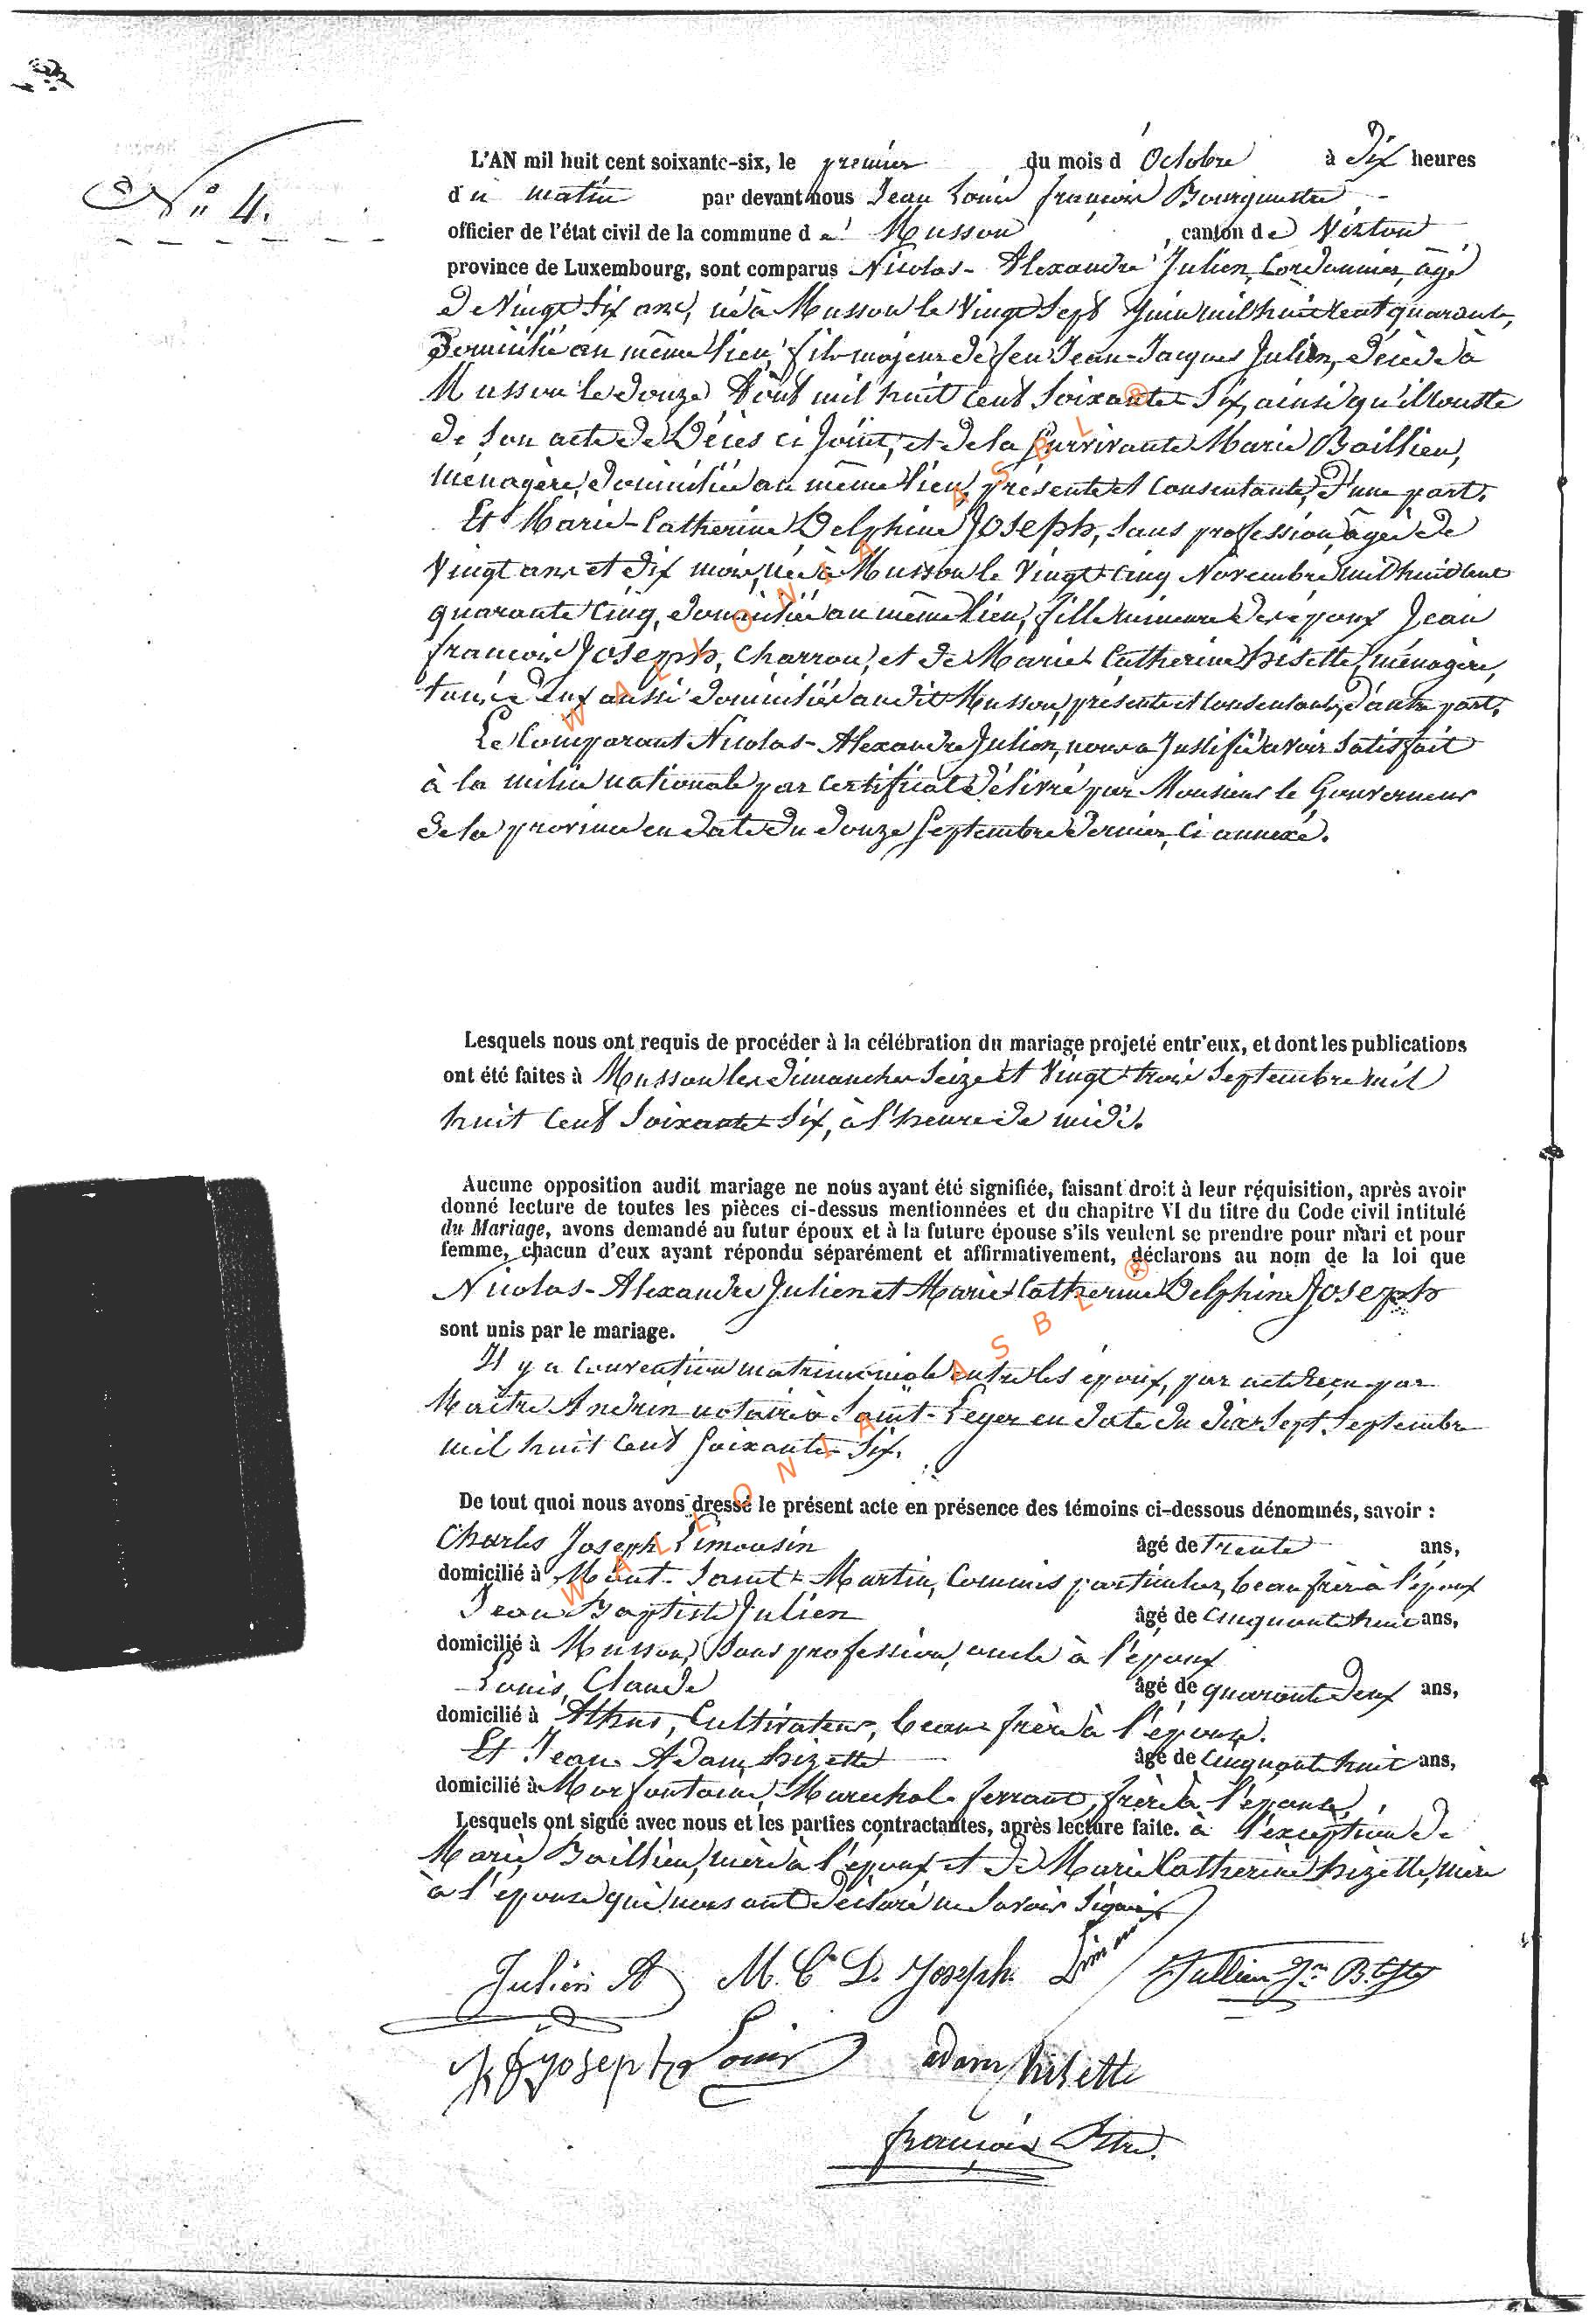 N° 4.
L'AN mil huit cent soixante-six, le premier du mois d'Octobre à Dix heures
du matin par devant nous Jean Louis françois Bourgmestre
officier de l'état civil de la commune de Musson, canton de Virton
province de Luxembourg, sont comparus Nicolas-Alexandre Julien, Cordonnier, âgé
de Vingt Six ans, né à Musson le Vingt Sept Juin mil huit cent quarante,
Domicilié au même lieu, fils majeur de feu Jean-Jacques Julien, décédé à
Musson le douze Août mil huit cent Soixante Six, ainsi qu'il conste
de son acte de Décès ci Joint, et de la Survivante Marie Baillieu,
ménagère, domiciliée au même lieu, présente et Consentante, d'une part.
Et Marie-Catherine Delphine Joseph, sans profession, âgée de
Vingt ans et dix mois, née à Musson le Vingt Cinq Novembre mil huit cent
quarante Cinq, domiciliée au même lieu, fille mineure des époux Jean
françois Joseph, Charron, et de Marie Catherine hisette, ménagère,
tous deux aussi domiciliés audit Musson, présents et Consentants, d'autre part.
Le Comparant Nicolas-Alexandre Julien, nous a Justifié avoir Satisfait
à la milice nationale par Certificat délivré par Monsieur le Gouverneur
de la province en date du douze Septembre dernier, Ci annexé.
Lesquels nous ont requis de procéder à la célébration du mariage projeté entr'eux, et dont les publications
ont été faites à Musson les dimanches Seize et Vingt trois Septembre mil
huit Cent Soixante Six, à l'heure de midi.
Aucune opposition audit mariage ne nous ayant été signifiée, faisant droit à leur réquisition, après avoir
donné lecture de toutes les pièces ci-dessus mentionnées et du chapitre VI du titre du Code civil intitulé
du Mariage, avons demandé au futur époux et à la future épouse s'ils veulent se prendre pour mari et pour
femme, chacun d'eux ayant répondu séparément et affirmativement, déclarons au nom de la loi que
Nicolas-Alexandre Julien et Marie Catherine Delphine Joseph
sont unis par le mariage.
Il y a Convention matrimoniale entre les époux, par acte reçu par
Maître Andrin notaire à Saint-Leger en date du dix Sept Septembre
mil huit Cent Soixante Six.
De tout quoi nous avons dressé le présent acte en présence des témoins ci-dessous dénommés, savoir :
Charles Joseph Limousin âgé de Trente ans,
domicilié à Mont-Saint-Martin, Commis particulier, beau frère à l'époux
Jean Baptiste Julien âgé de Cinquante huit ans,
domicilié à Musson, Sans profession, oncle à l'époux
Louis, Claude âgé de quarante Deux ans,
domicilié à Athus, Cultivateur, beau frère à l'épouse.
Et Jean Adam hizette âgé de Cinquante huit ans,
domicilié à Morfontaine, Maréchal ferrant, frère à l'épouse,
Lesquels ont signé avec nous et les parties contractantes, après lecture faite. à l'exception de
Marie Baillieu, mère à l'époux et de Marie Catherine hizette, mère
à l'épouse qui nous ont déclaré ne Savoir Signer
Julien A M. C. D. Joseph. Limou Jullien Jn Bte
Joseph Louis adam hisette
françois
WALLONIA ASBL ®
WALLONIA ASBL ®